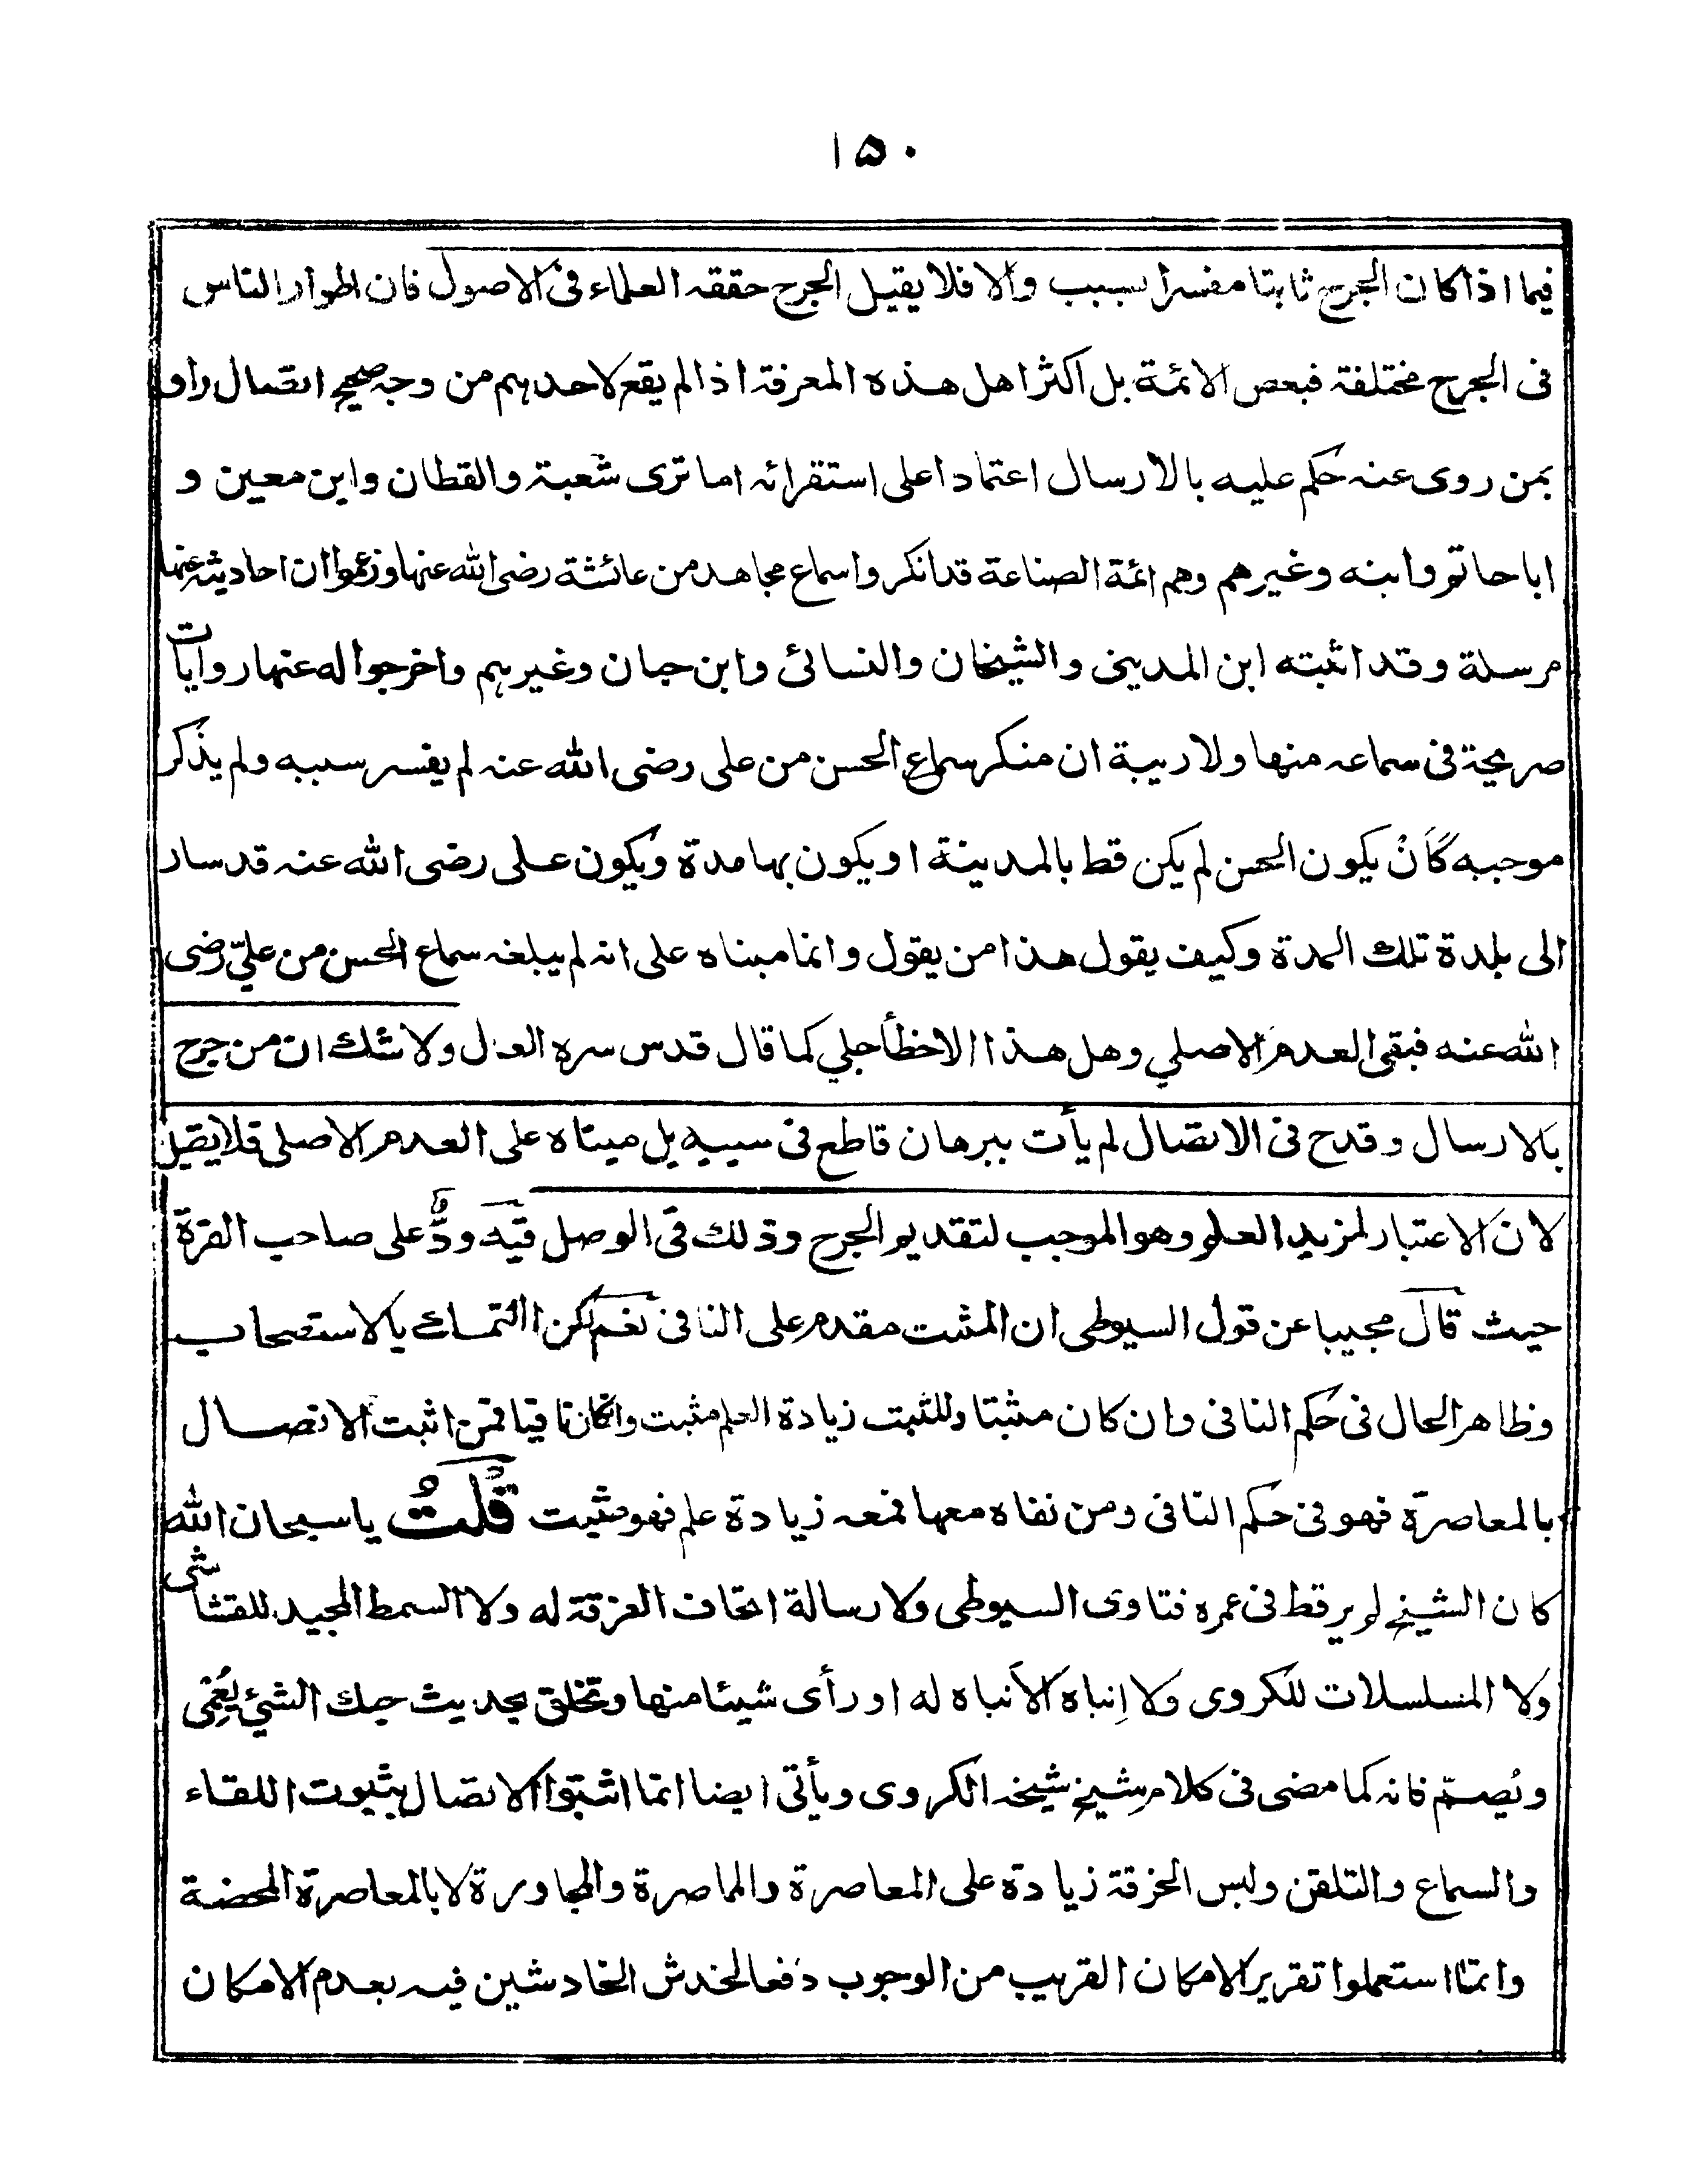 ۱۵۰
فيما اذا كان الجرح ثابتا مفسرا بسبب والا فلا يقبل الجرح حققه العلماء فى الاصول فان اطوار الناس
فى الجرح مختلفة فبعض الائمة بل اكثر اهل هذه المعرفة اذا لم يقع لاحدهم من وجه صحيح اتصال راو
بمن روى عنه حكم عليه بالارسال اعتمادا على استقرائه اما ترى شعبة والقطان وابن معين و
اباحاتم وابنه وغيرهم وهم ائمة الصناعة قد انكروا سماع مجاهد من عائشة رضى الله عنها وزعموا ان احاديثه عنها
مرسلة وقد اثبته ابن المدينى والشيخان والنسائى وابن حبان وغيرهم واخرجوا له عنها روايات
صريحة فى سماعه منها ولا ريبة ان منكر سماع الحسن من على رضى الله عنه لم يفسر سببه ولم يذكر
موجبه كَاَنْ يكون الحسن لم يكن قط بالمدينة او يكون بها مدة ويكون على رضى الله عنه قد سار
الى بلدة تلك المدة وكيف يقول هذا من يقول وانما مبناه على انه لم يبلغه سماع الحسن من علىّ رضى
الله عنه فبقى العدم الاصلي وهل هذا الا خطأ جلي كما قال قدس سره العدل ولا شك ان من جرح
بالارسال وقدح فى الاتصال لم يأت ببرهان قاطع فى سببه بل مبناه على العدم الاصلى فلا يقبل
لان الاعتبار لمزيد العلم وهو الموجب لتقديم الجرح وذلك فى الوصل فيه ردٌّ على صاحب القرة
حيث قال مجيبا عن قول السيوطى ان المثبت مقدم على النافى نعم لكن التمسك بالاستصحاب
وظاهر الحال فى حكم النافى وان كان مثبتا وللثبت زيادة العلم مثبت وانكان نافيا فمن اثبت الاتصال
بالمعاصرة فهو فى حكم النافى ومن نفاه معها فمعه زيادة علم فهو مثبت قُلْتُ ياسبحان الله
كان الشيخ لم ير قط فى عمره فتاوى السيوطى ولا رسالة اتحاف الفرقة له ولا السمط المجيد للقشاشى
ولا المسلسلات للكروى ولا اِنباه الاَنباه له او رأى شيئا منها وتخلق بحديث حبك الشئ يُعْمِى
ويُصِمّ فانه كما مضى فى كلام شيخ شيخه الكروى ويأتى ايضا انما اثبتوا الاتصال بثبوت اللقاء
والسماع والتلقن ولبس الخرقة زيادة على المعاصرة والماصرة والمجاورة لا بالمعاصرة المحضة
وانما استعملوا تقرير الامكان القريب من الوجوب دفعا لخدش الخادشين فيه بعدم الامكان